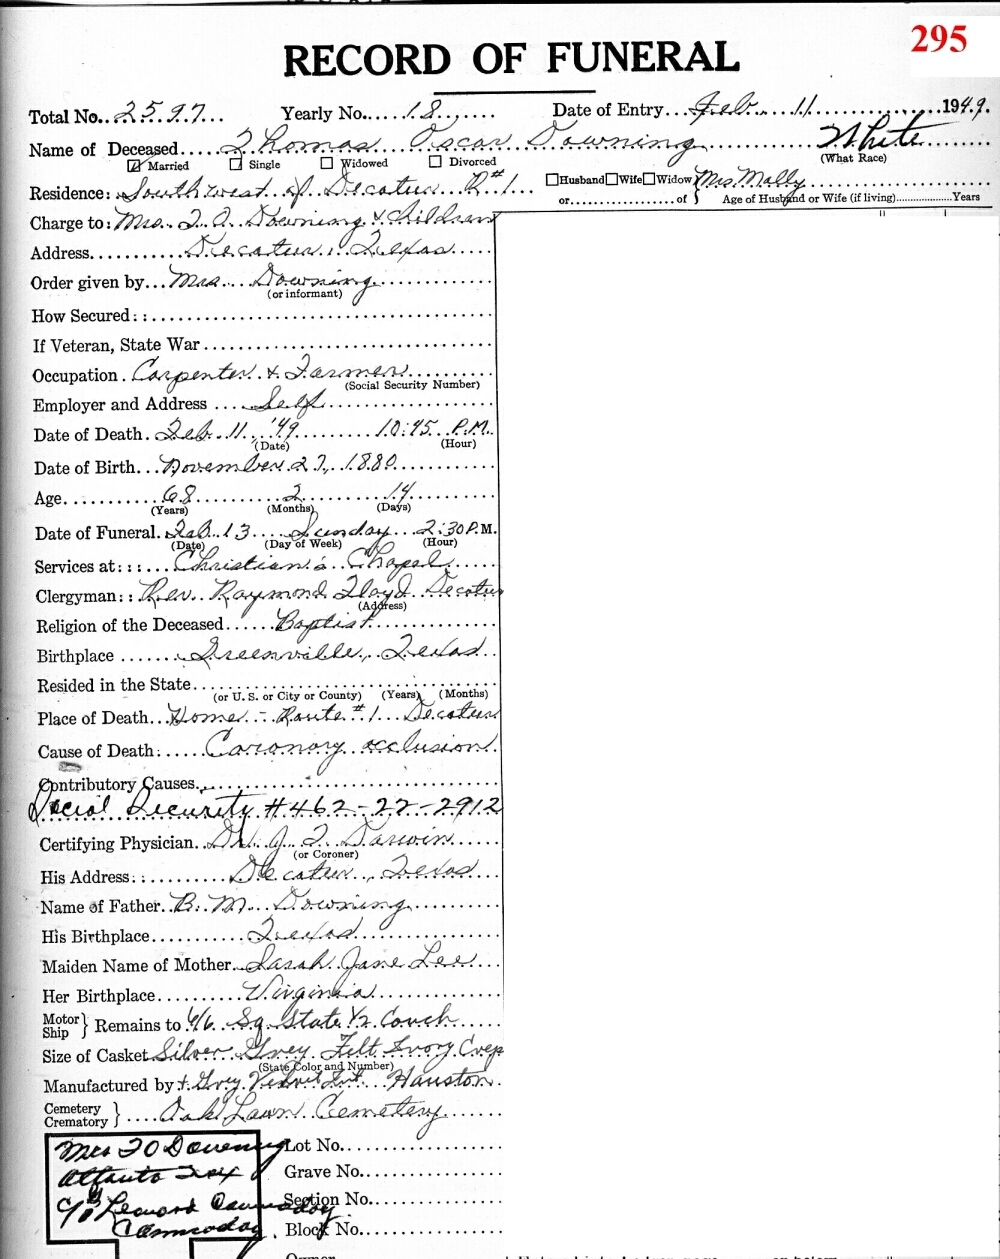 295
RECORD OF FUNERAL
Total No. 2597 Yearly No. 18 Date of Entry Feb. 11 1949.
Name of Deceased Thomas Oscar Downing White
(What Race)
☑ Married ☐ Single ☐ Widowed ☐ Divorced
Residence: Southwest of Decatur R#1 ☐Husband☐Wife☐Widow Mrs. Molly
or of Age of Husband or Wife (if living) Years
Charge to: Mrs. T. O. Downing & Children
Address Decatur, Texas
Order given by Mrs. Downing
(or informant)
How Secured::
If Veteran, State War
Occupation Carpenter & Farmer
(Social Security Number)
Employer and Address Self
Date of Death Feb. 11, '49 10:45 P.M.
(Date) (Hour)
Date of Birth November 27, 1880
Age 68 2 14
(Years) (Months) (Days)
Date of Funeral Feb. 13 Sunday 2:30 P.M.
(Date) (Day of Week) (Hour)
Services at::: Christian's Chapel
Clergyman:: Rev. Raymond Floyd Decatur
(Address)
Religion of the Deceased Baptist
Birthplace Greenville, Texas
Resided in the State
(or U. S. or City or County) (Years) (Months)
Place of Death Home - Route #1 Decatur
Cause of Death: Coronary occlusion
Contributory Causes
Social Security # 462-22-2912
Certifying Physician Dr. J. T. Darwin
(or Coroner)
His Address:: Decatur, Texas
Name of Father B. M. Downing
His Birthplace Texas
Maiden Name of Mother Sarah Jane Lee
Her Birthplace Virginia
Motor
Ship } Remains to 6/6 Sq State 1/2 Couch
Size of Casket Silver Grey Felt Ivory Crep
(State Color and Number)
Manufactured by + Grey Velvet Int Houston
Cemetery
Crematory } Oak Lawn Cemetery
Mrs TO Downing Lot No.
Tex Grave No.
c/o Leward Section No.
Block No.
Owner